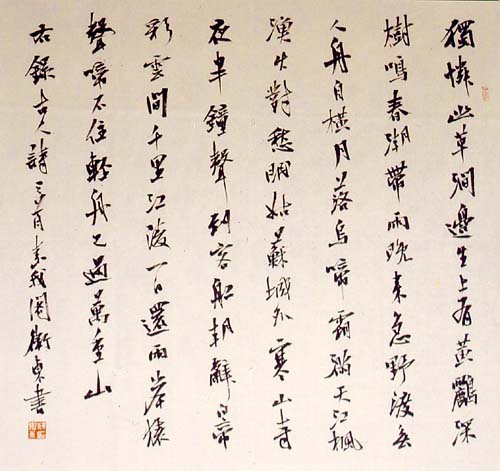 獨憐幽草澗邊生上有黃鸝深
樹鳴春潮帶雨晚來急野渡無
人舟自橫月落烏啼霜滿天江楓
漁火對愁眠姑蘇城外寒山寺
夜半鐘聲到客船朝辭白帝
彩雲間千里江陵一日還兩岸猿
聲啼不住輕舟已過萬重山
右錄古人詩三首 書